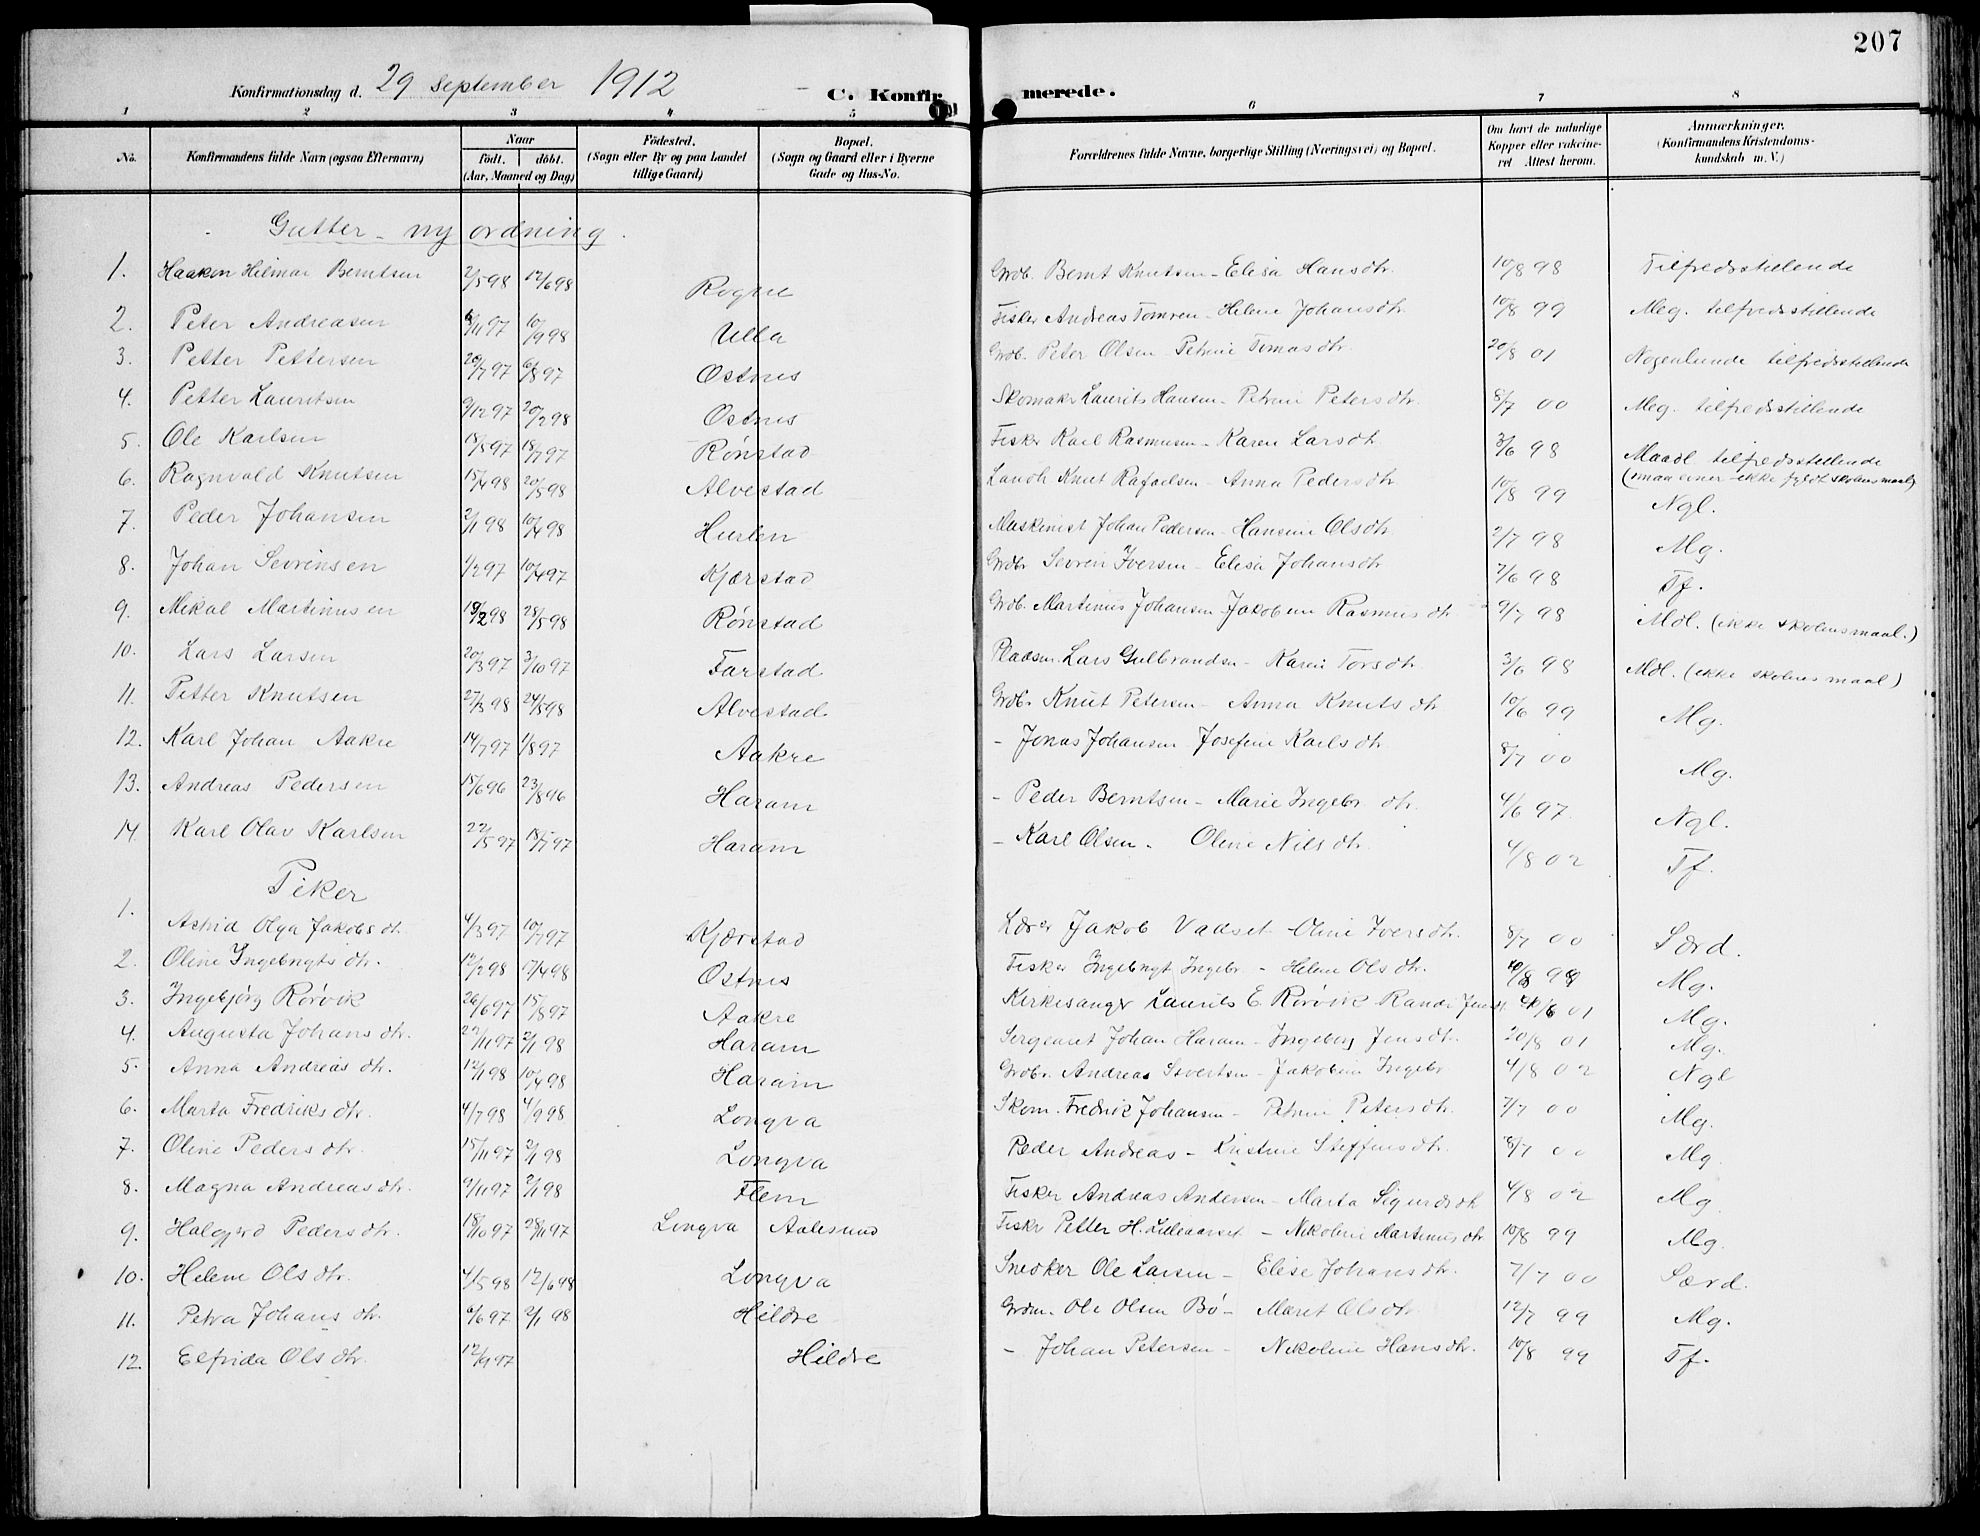 207
Konfirmationsdag d. 29 september 1912 C. Konfir merede.
1 2 3 4 5 6 7 8
No. Konfirmandens fulde Navn (ogsaa Efternavn) Naar födt. döbt. (Aar, Maaned og Dag) Födested. (Sogn eller By og paa Landet tillige Gaard) Bopæl. (Sogn og Gaard eller i Byerne Gade og Hus-No. Forældrenes fulde Navne, borgerlige Stilling (Næringsvei) og Bopæl. Om havt de naturlige Kopper eller vakcineret Attest herom. Anmærkninger. (Konfirmandens Kristendomskundskab m. V.)
Gutter - ny ordning.
1. Haakon Hilmar Berntsen 2/5 98 12/6 98 Rogne Grdb. Bernt Knutsen - Elisa Hansdtr. 10/8 98 Tilfredsstillende
2. Peter Andreasen 6/11 97 10/9 98 Ulla Fisker Andreas Tomren - Heline Johansdtr 10/8 99 Meg. tilfredsstillende
3. Petter Pettersen 20/7 97 6/8 97 Østnes Grdb. Peter Olsen Petrine Tomasdtr. 20/8 01 Nogenlunde tilfredsstillende
4. Petter Lauritsen 9/12 97 20/2 98 Østnes Skomakr Laurits Hansen - Petrine Petersdtr. 8/7 00 Meg. tilfredsstillende
5. Ole Karlsen 18/5 97 18/7 97 Rønstad Fisker Karl Rasmusen - Karen Larsdtr. 3/6 98 Maadl. tilfredsstillende
6. Ragnvald Knutsen 15/4 98 20/5 98 Alvestad Landh. Knut Rafaelsen - Anna Pedersdtr 10/8 99 Ngl.
7. Peder Johansen 2/1 98 10/4 98 Hurlen Maskinist Johan Pedersen - Hansine Olsdtr 2/7 98 Mg.
8. Johan Sevrinsen 1/2 97 10/4 97 Kjærstad Grdbr Sevrin Iversen - Elisa Johansdtr 7/6 98 Tf.
9. Mikal Martinusen 19/2 98 28/5 98 Rønstad Grdb. Martinus Johansen Jakobine Rasmusdtr 9/7 98 Mdl. (ikke skolens maal.)
10. Lars Larsen 20/3 97 3/10 97 Farstad Pladsm. Lars Gulbrandsen - Karen Torsdtr. 3/6 98 Mdl. (ikke skolens maal)
11. Petter Knutsen 27/3 98 24/5 98 Alvestad Grdbr Knut Petersen - Anna Knutsdtr 10/6 99 Mg.
12. Karl Johan Aakre 14/7 97 1/8 97 Aakre - Jonas Johansen Josefine Karlsdtr. 8/7 00 Mg.
13. Andreas Pedersen 15/6 96 23/8 96 Haram - Peder Berntsen - Marie Ingebr. dtr. 4/6 97 Ngl.
14. Karl Olav Karlsen 22/5 97 18/7 97 Haram - Karl Olsen - Oline Nilsdtr. 4/8 02 Tf.
Piker
1. Astrid Olga Jakobsdtr. 4/3 97 10/7 97 Kjærstad Lærer Jakob Vadset Oline Iversdtr. 8/7 00 Særd.
2. Oline Ingebrigtsdtr. 12/2 98 17/4 98 Østnes Fisker Ingebrigt Ingebr. - Heline Olsdtr. 10/8 98 Mg.
3. Ingebjørg Rørvik 26/6 97 15/8 97 Aakre Kirkesanger Laurits E. Rørvik Randi Jensdt. 01 Mg.
4. Augusta Johansdtr. 22/11 97 2/1 98 Haram Sergeant Johan Haram - Ingeborg Jensdtr. 20/8 01 Mg.
5. Anna Andreasdtr. 12/1 98 10/4 98 Haram Grdbr. Andreas Sivertsen - Jakobine Ingebr 4/8 02 Ngl
6. Marta Fredriksdtr. 4/7 98 4/9 98 Longva Skom. Fredrik Johansen - Petrine Petersdtr. 7/7 00 Mg.
7. Oline Pedersdtr. 15/11 97 2/1 98 Longva Peder Andreas - Kristine Steffensdtr. 8/7 00 Mg
8. Magna Andreasdtr. 9/11 97 2/1 98 Flem Fisker Andreas Andersen - Marta Sigurdsdtr 4/8 02 Mg
9. Halgjerd Pedersdtr. 18/10 97 28/11 97 Longva Aalesund Fiskr Petter H. Lilleaarset - Nikoline Martinusdtr 10/8 99 Mg.
10. Heline Olsdtr. 4/5 98 12/6 98 Longva Snedker Ole Larsen - Elise Johansdtr. 7/7 00 Særd.
11. Petra Johansdtr. 6/6 97 2/1 98 Hildre Grdm. Ole Olsen Bø - Maret Olsdtr. 12/7 99 Mg.
12. Elfrida Olsdtr. 12/9 97 Hildre - Johan Petersen - Nikoline Hansdtr. 10/8 99 Tf.